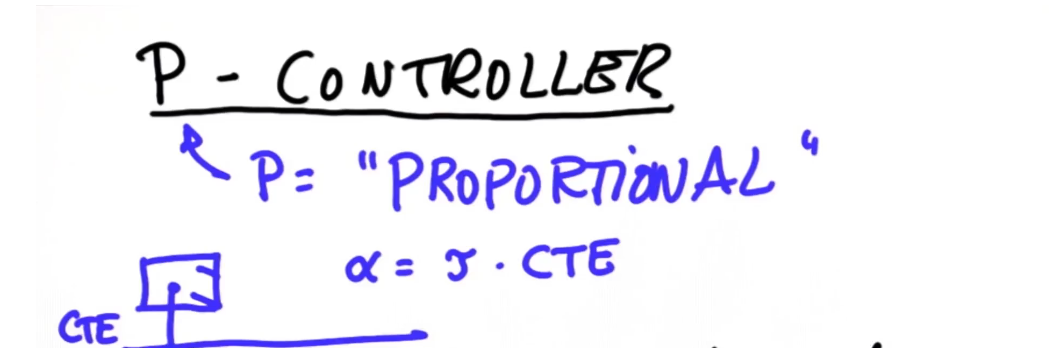 P - CONTROLLER
P = "PROPORTIONAL"
α = τ · CTE
CTE